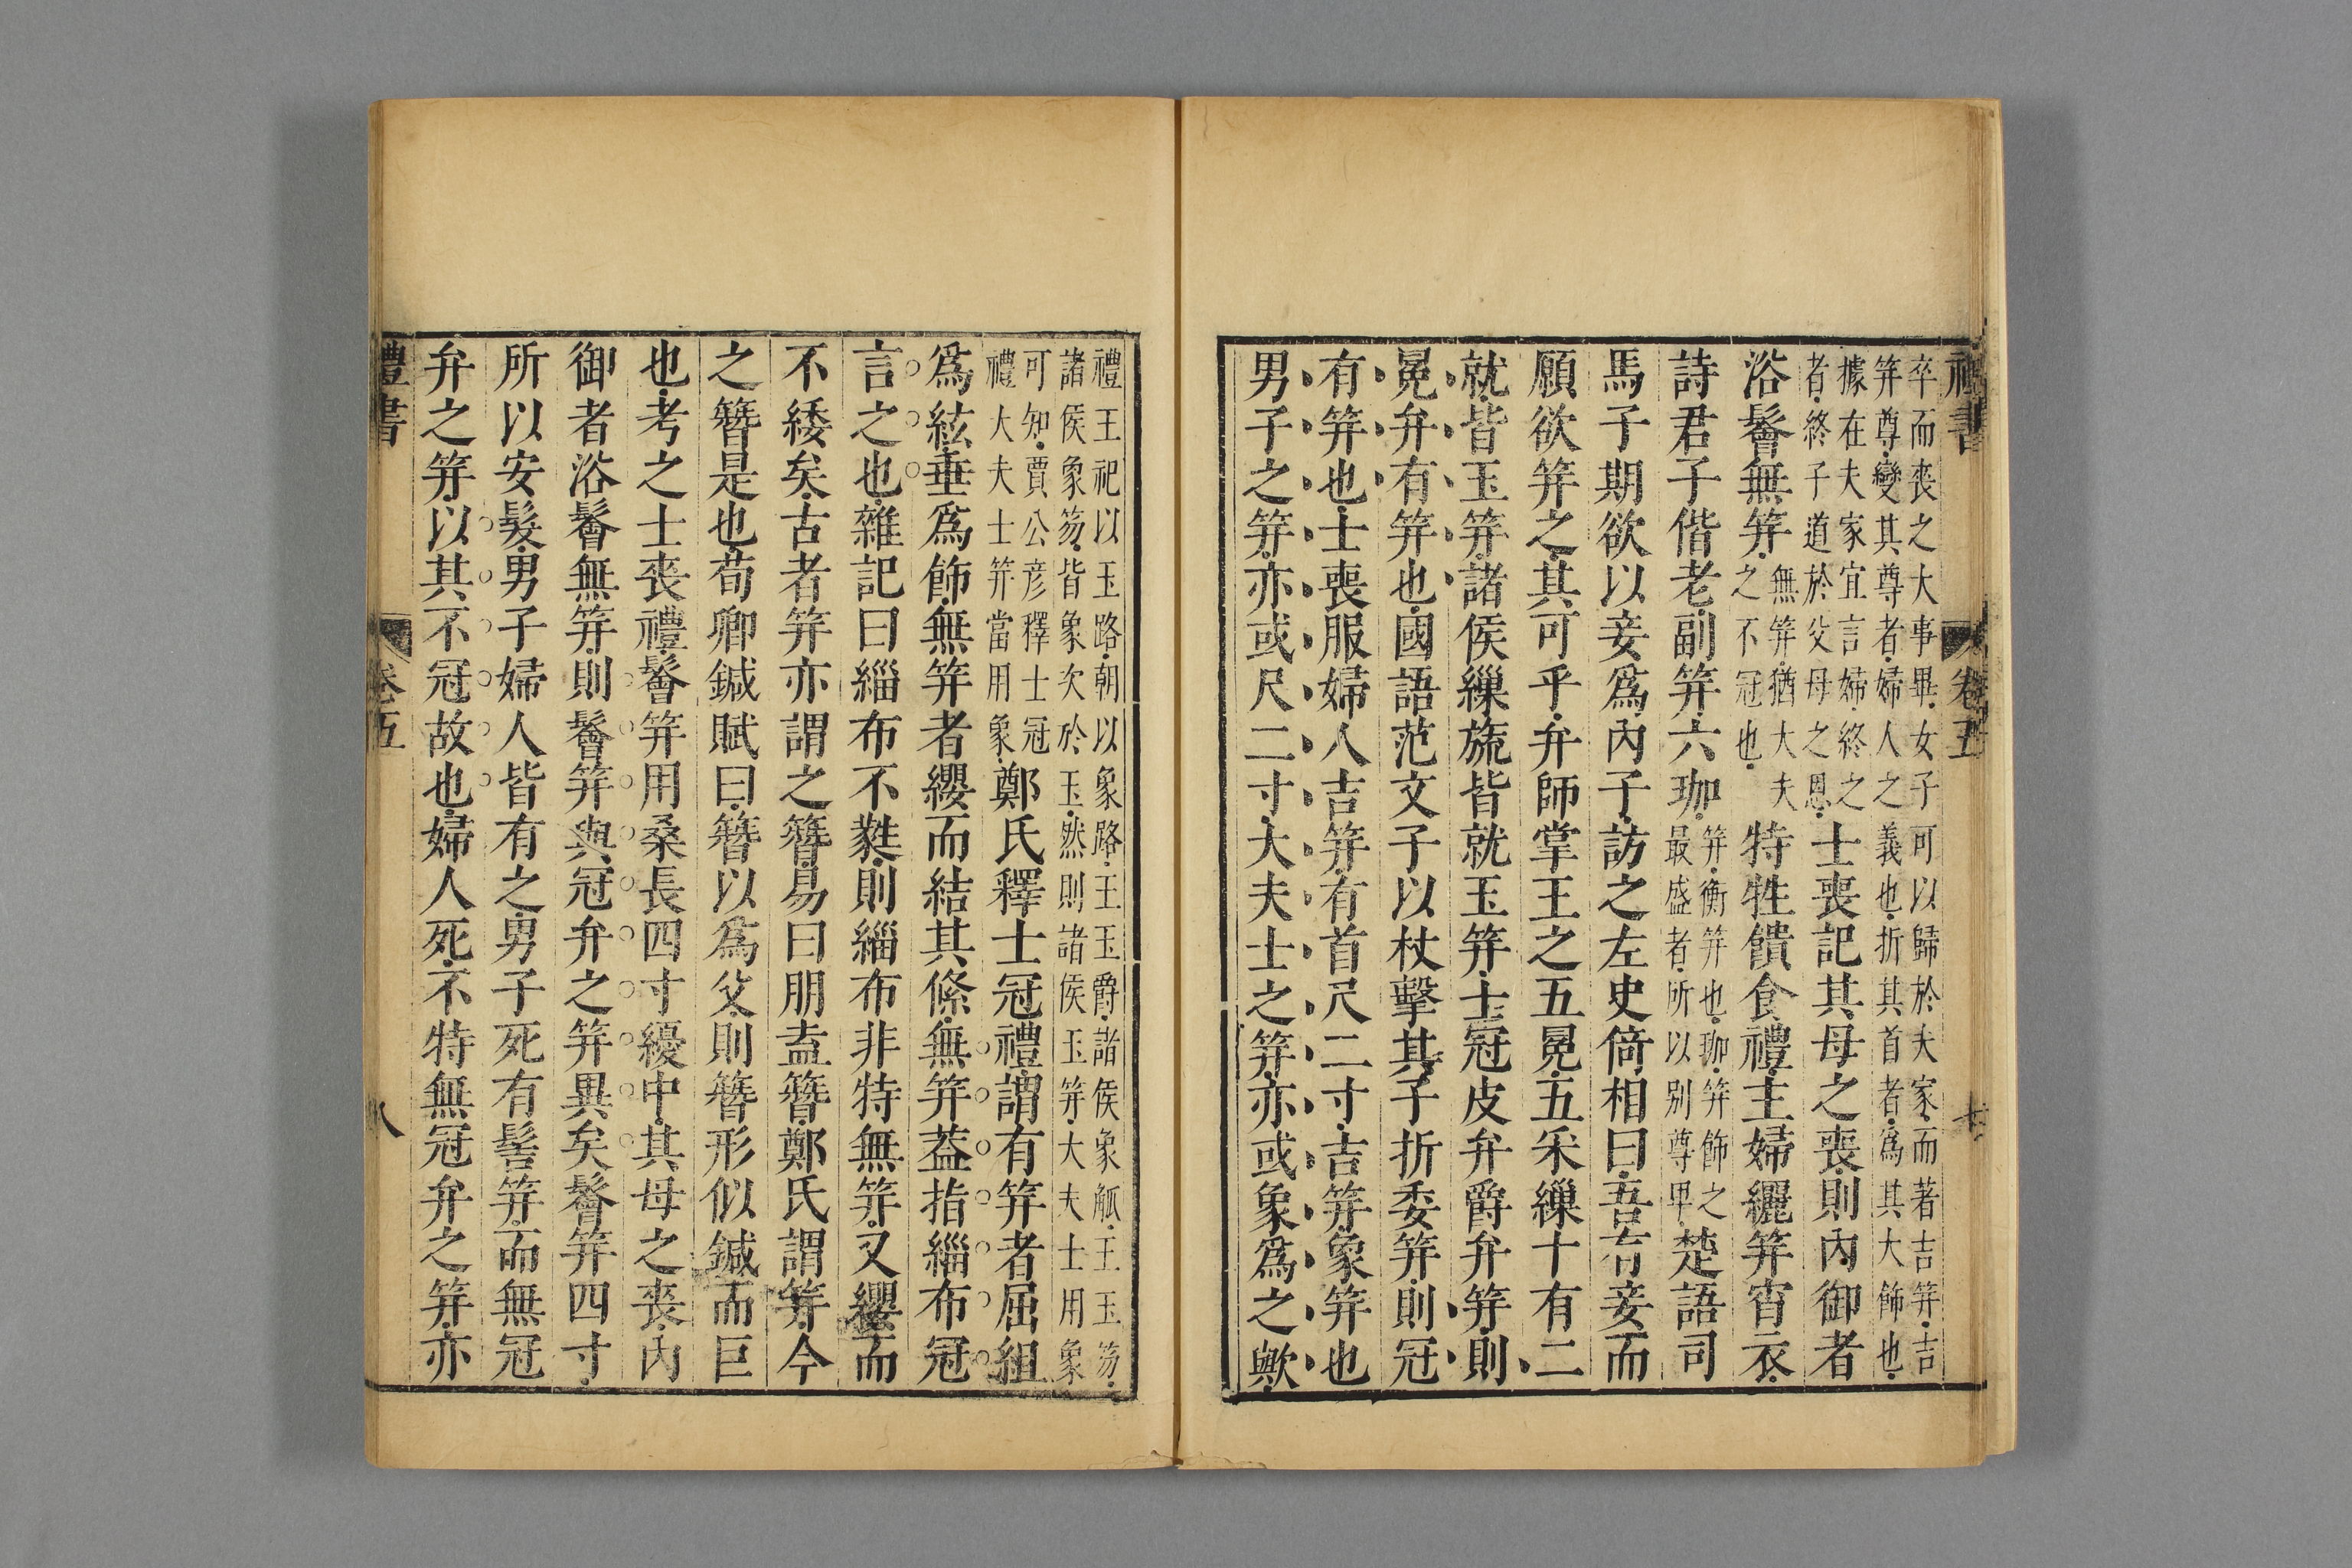 禮書 卷五 七
卒而喪之大事畢女子可以歸於夫家而著吉筓吉
筓尊變其尊者婦人之義也折其首者爲其大飾也
據在夫家宜言婦終之
者終子道於父母之恩
士喪記其母之喪則內御者
浴鬠無筓
無筓猶大夫
之不冠也
特牲饋食禮主婦纚筓宵衣
詩君子偕老副筓六珈
筓衡筓也珈筓飾之
最盛者所以別尊卑
楚語司
馬子期欲以妾爲內子訪之左史倚相曰吾有妾而
願欲筓之其可乎弁師掌王之五冕五采繅十有二
就皆玉筓諸侯繅旒皆就玉筓士冠皮弁爵弁筓則
冕弁有筓也國語范文子以杖擊其子折委筓則冠
有筓也士喪服婦人吉筓有首尺二寸吉筓象筓也
男子之筓亦或尺二寸大夫士之筓亦或象爲之歟
禮王祀以玉路朝以象路王玉爵諸侯象觚王玉笏
諸侯象笏皆象次於玉然則諸侯玉筓大夫士用象
可知賈公彦釋士冠
禮大夫士筓當用象
鄭氏釋士冠禮謂有筓者屈組
爲紘垂爲飾無筓者纓而結其絛無筓蓋指緇布冠
言之也雜記曰緇布不蕤則緇布非特無筓又纓而
不緌矣古者筓亦謂之簪易曰朋盍簪鄭氏謂筓今
之簪是也荀卿鍼賦曰簪以爲父則簪形似鍼而巨
也考之士喪禮鬠筓用桑長四寸纋中其母之喪內
御者浴鬠無筓則鬠筓與冠弁之筓異矣鬠筓四寸
所以安髮男子婦人皆有之男子死有髻筓而無冠
弁之筓以其不冠故也婦人死不特無冠弁之筓亦
禮書 卷五 八